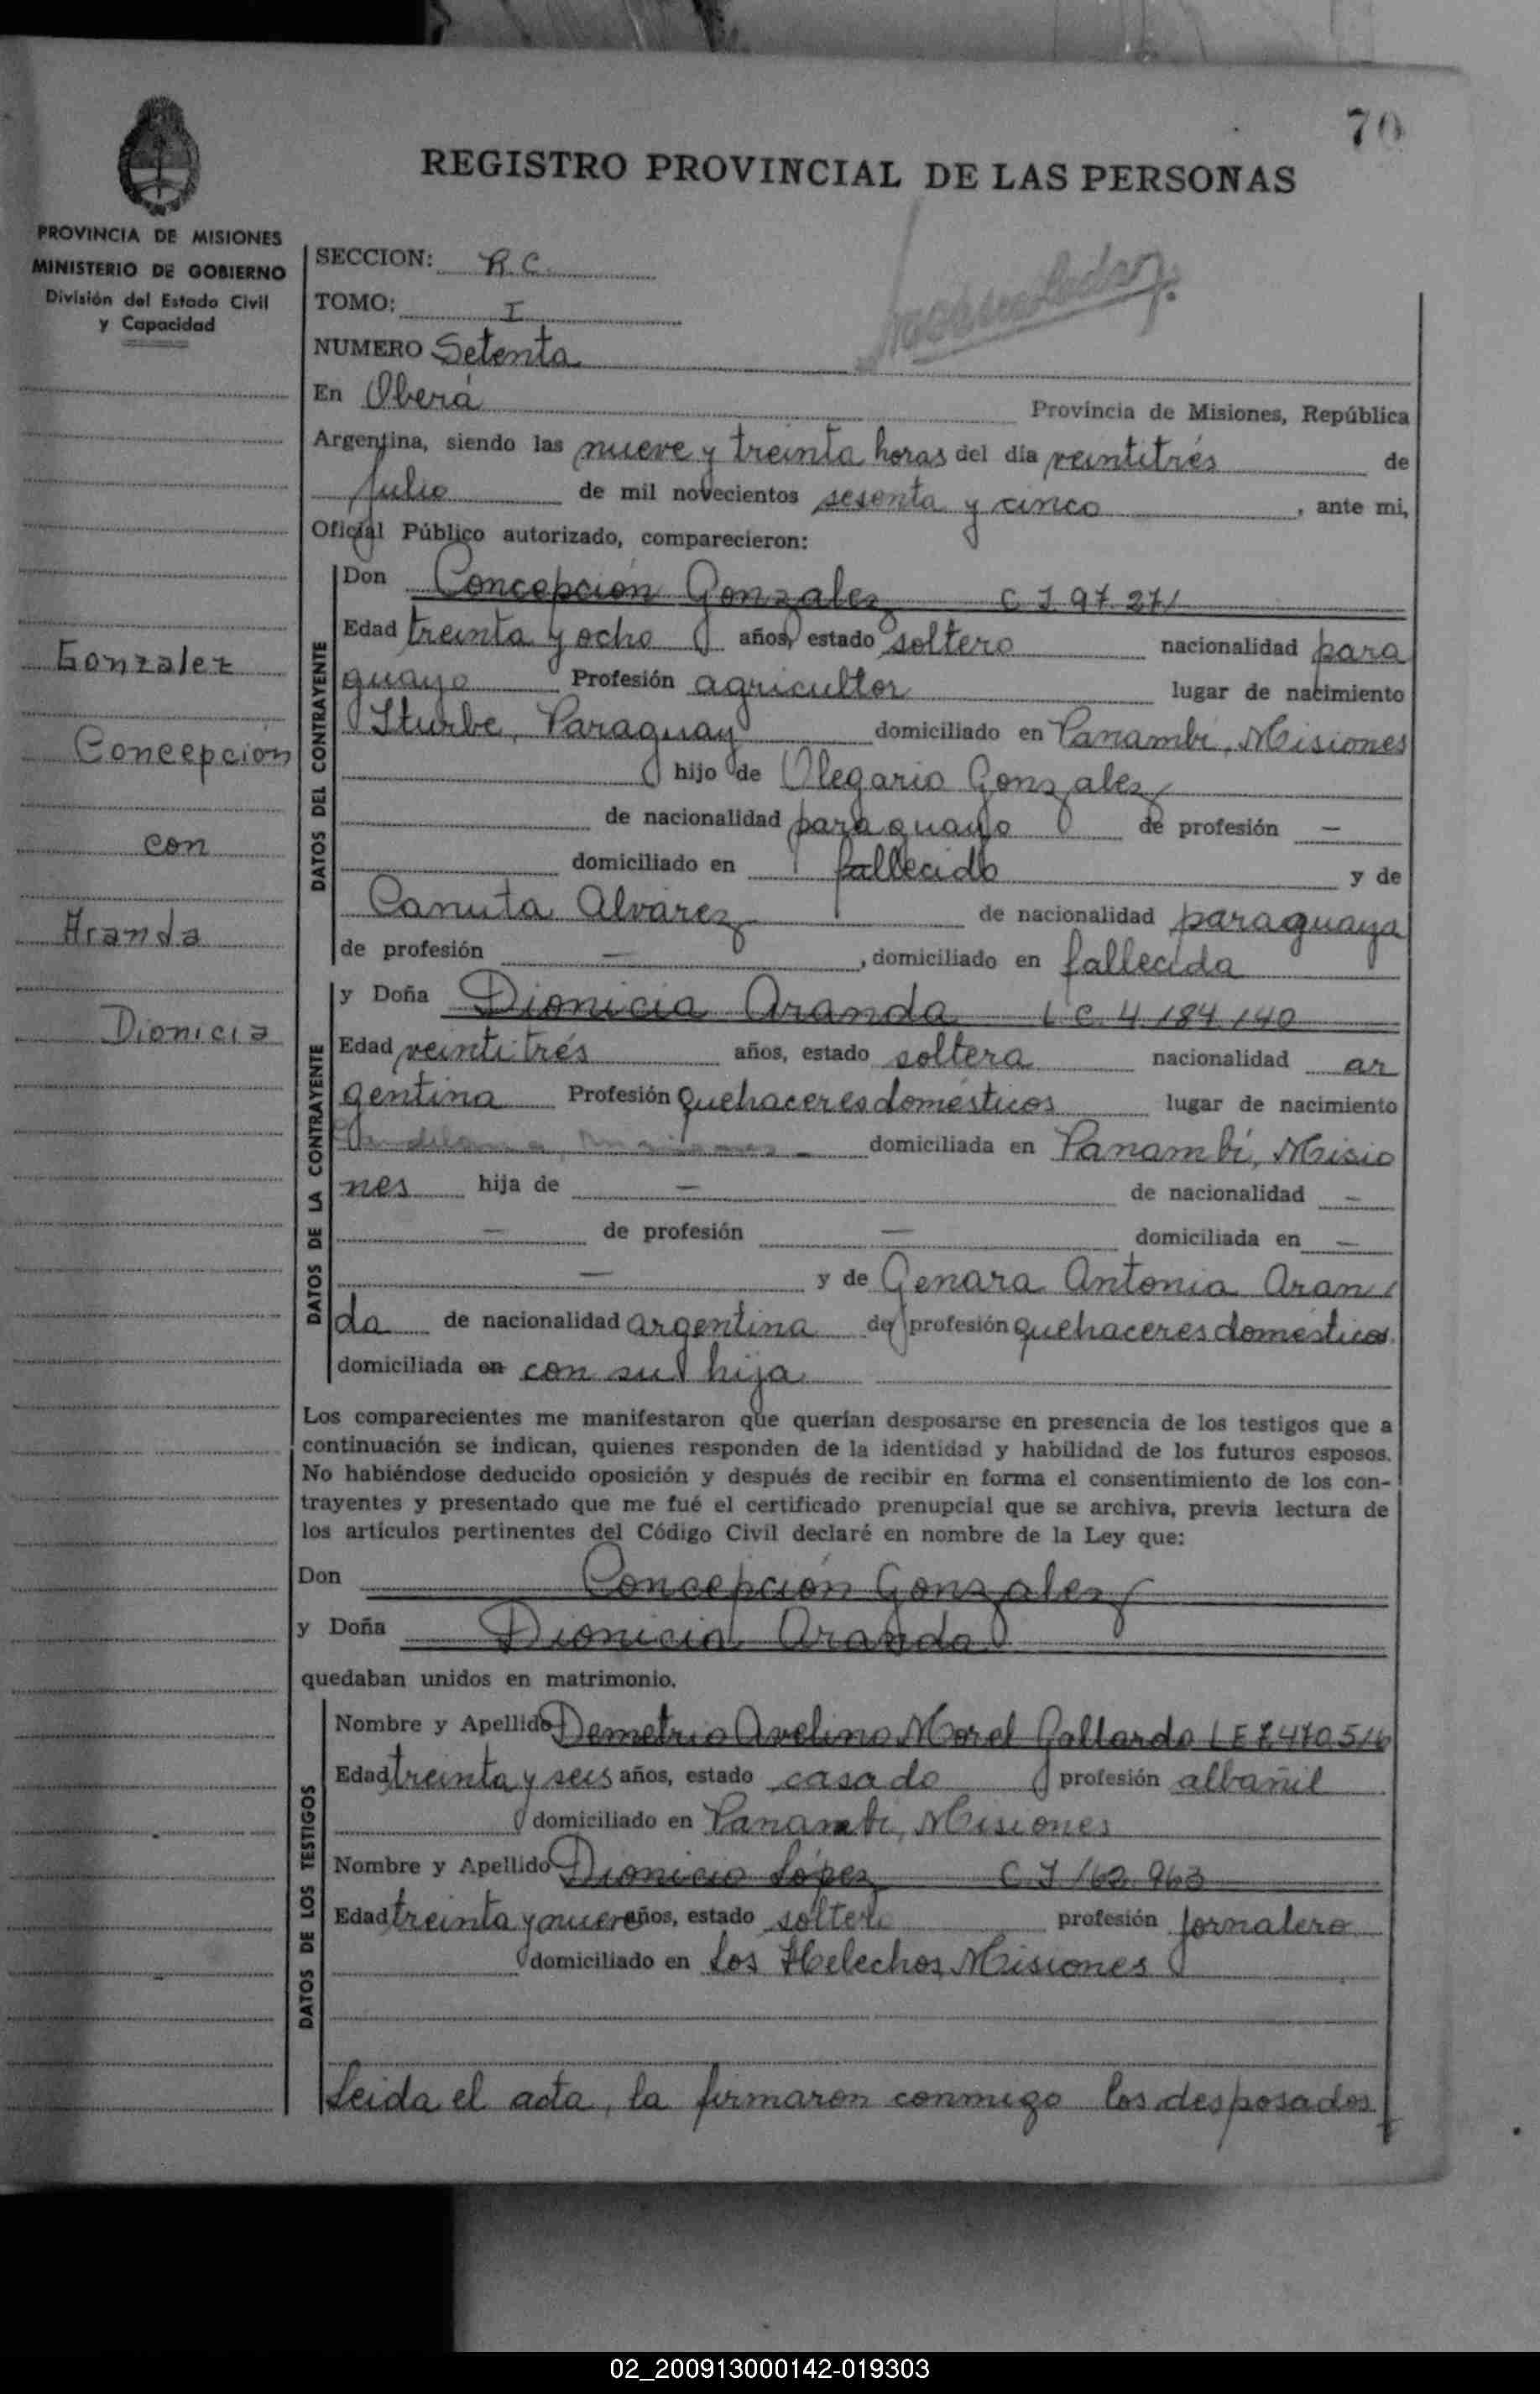 70
REGISTRO PROVINCIAL DE LAS PERSONAS
PROVINCIA DE MISIONES
MINISTERIO DE GOBIERNO
División del Estado Civil
y Capacidad
Gonzalez
Concepción
con
Aranda
Dionicia
SECCION: R.C.
TOMO: I
NUMERO Setenta
En Oberá Provincia de Misiones, República
Argentina, siendo las nueve y treinta horas del día veintitrés de
Julio de mil novecientos sesenta y cinco, ante mi,
Oficial Público autorizado, comparecieron:
DATOS DEL CONTRAYENTE
Don Concepción Gonzalez C I 97.271
Edad treinta y ocho años, estado soltero nacionalidad para
guayo Profesión agricultor lugar de nacimiento
Iturbe, Paraguay domiciliado en Panambí, Misiones
hijo de Olegario Gonzalez
de nacionalidad paraguayo de profesión —
domiciliado en fallecido y de
Canuta Alvarez de nacionalidad paraguaya
de profesión —, domiciliado en fallecida
DATOS DE LA CONTRAYENTE
y Doña Dionicia Aranda L C. 4.184.140
Edad veintitrés años, estado soltera nacionalidad ar
gentina Profesión quehaceres domésticos lugar de nacimiento
domiciliada en Panambí, Misio
nes hija de — de nacionalidad —
— de profesión — domiciliada en —
— y de Genara Antonia Aran
da de nacionalidad argentina de profesión quehaceres domésticos
domiciliada en con su hija
Los comparecientes me manifestaron que querían desposarse en presencia de los testigos que a
continuación se indican, quienes responden de la identidad y habilidad de los futuros esposos.
No habiéndose deducido oposición y después de recibir en forma el consentimiento de los con-
trayentes y presentado que me fué el certificado prenupcial que se archiva, previa lectura de
los artículos pertinentes del Código Civil declaré en nombre de la Ley que:
Don Concepción Gonzalez
y Doña Dionicia Aranda
quedaban unidos en matrimonio.
DATOS DE LOS TESTIGOS
Nombre y Apellido Demetrio Avelino Morel Gallardo L E
Edad treinta y seis años, estado casado profesión albañil
domiciliado en Panambí, Misiones
Nombre y Apellido Dionicio López C I 162.963
Edad treinta y nueve años, estado soltero profesión jornalero
domiciliado en Los Helechos, Misiones
Leida el acta, la firmaron conmigo los desposados
02_200913000142-019303